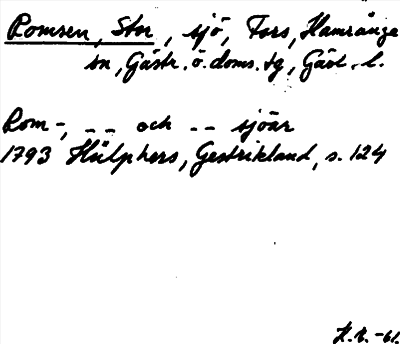 Romsen, Stor, sjö, Fors, Hamrånge
sn, Gästr. ö. doms. tg, Gävl. l.
Rom-, -- och -- sjöar
1793 Hülphers, Gestrikland, s. 124
H.R. -61.